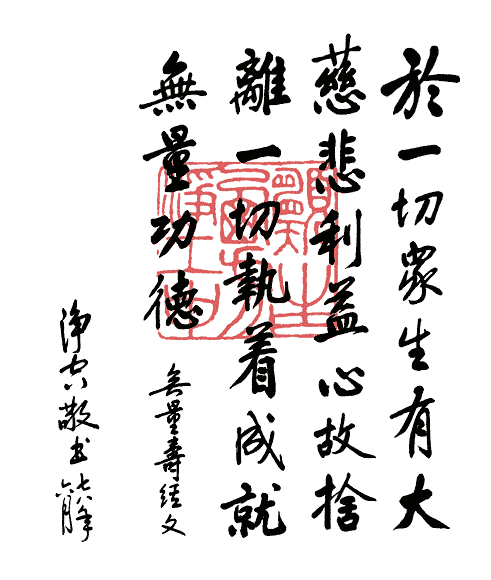 於一切衆生有大
慈悲利益心故捨
離一切執着成就
無量功德
無量壽經文
淨空敬书
願生西方淨土中